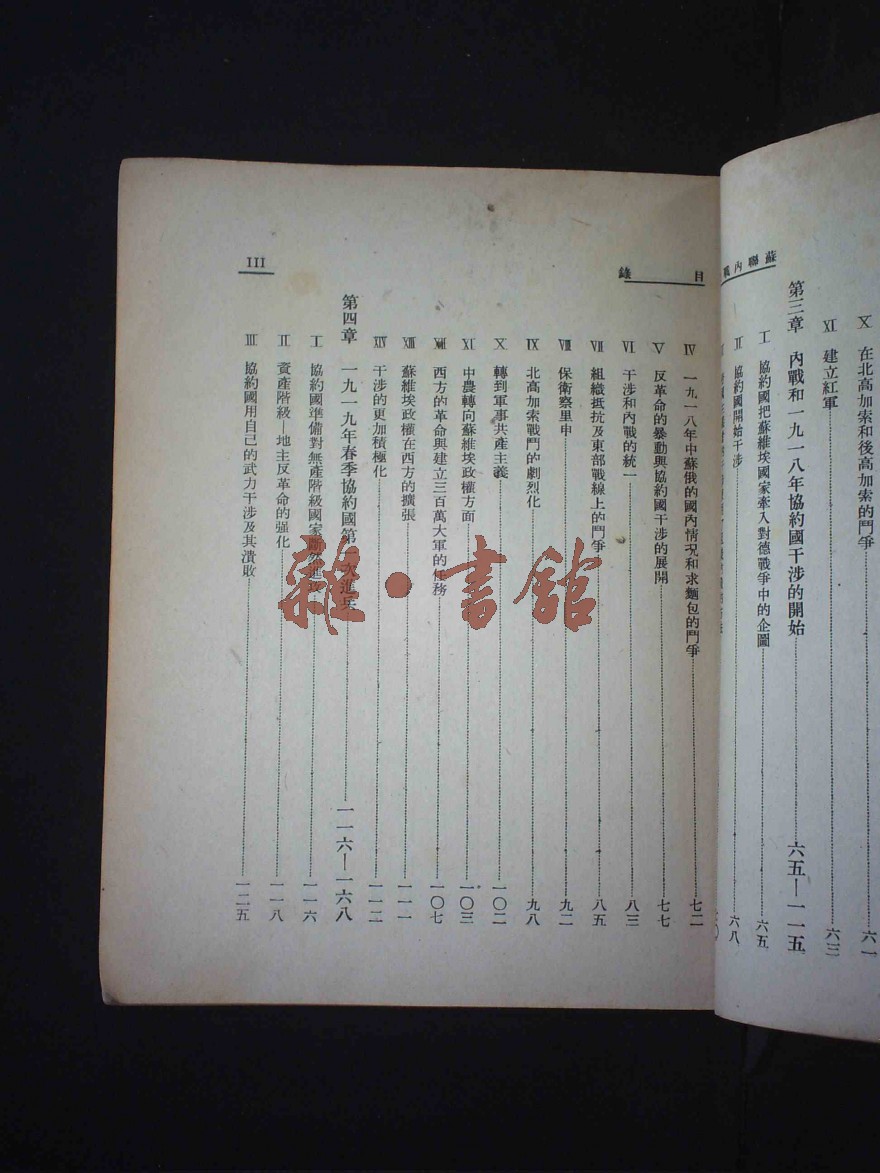 蘇聯內
X 在北高加索和後高加索的鬥爭 六一
XI 建立紅軍 六三
第三章 內戰和一九一八年協約國干涉的開始 六五—一一五
I 協約國把蘇維埃國家牽入對德戰爭中的企圖 六五
II 協約國開始干涉 六八
目錄
IV 一九一八年中蘇俄的國內情况和求麵包的鬥爭 七二
V 反革命的暴動與協約國干涉的展開 七七
VI 干涉和內戰的統一 八三
VII 組織抵抗及東部戰線上的鬥爭 八五
VIII 保衛察里申 九二
IX 北高加索戰鬥的劇烈化 九八
X 轉到軍事共產主義 一〇二
XI 中農轉向蘇維埃政權方面 一〇三
XII 西方的革命與建立三百萬大軍的任務 一〇七
XIII 蘇維埃政權在西方的擴張 一一一
XIV 干涉的更加積極化 一一二
第四章 一九一九年春季協約國第一次進兵 一一六—一六八
I 協約國準備對無產階級國家斷然進攻 一一六
II 資產階級—地主反革命的强化 一一八
III 協約國用自己的武力干涉及其潰敗 一二五
III
雜·書館